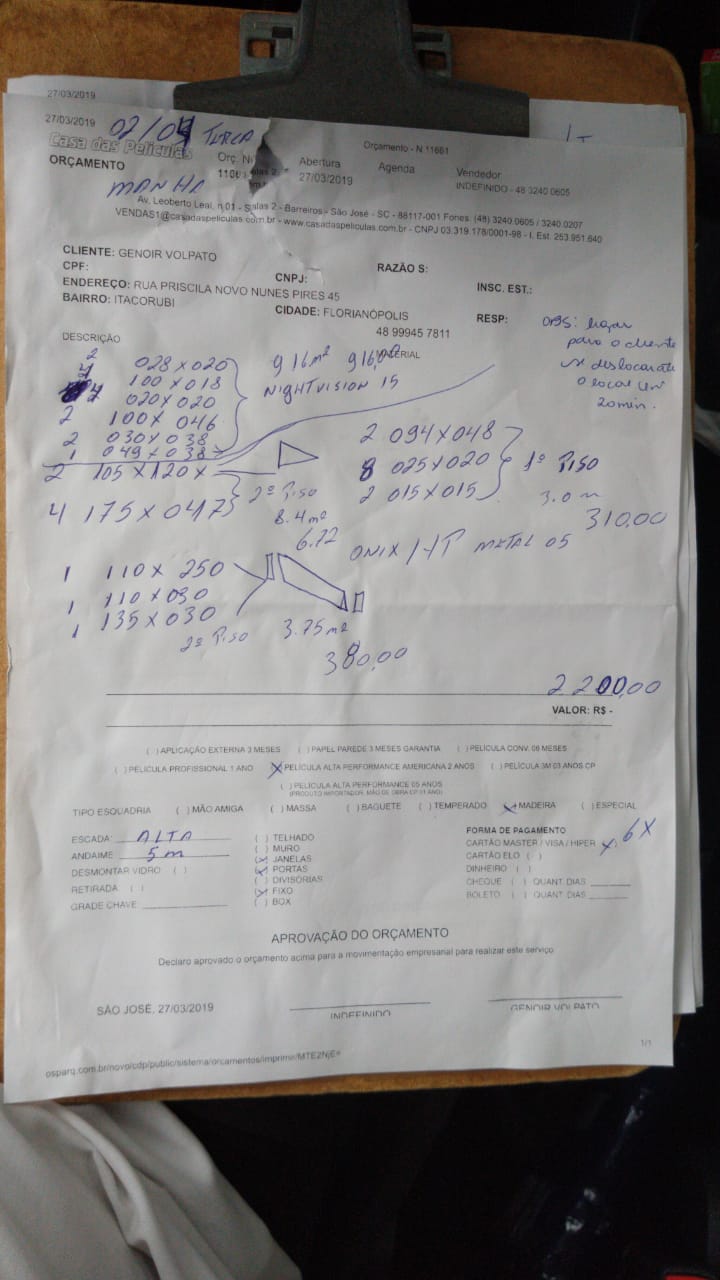 27/03/2019
27/03/2019 02/04 TERÇA
Orçamento - N 11661
Casa das Películas
ORÇAMENTO
Abertura
Agenda
Vendedor
27/03/2019
INDEFINIDO - 48 3240 0605
MANHÃ
Av. Leoberto Leal, n 01 - Salas 2 - Barreiros - São José - SC - 88117-001 Fones: (48) 3240.0605 / 3240.0207
VENDAS1@casadaspeliculas.com.br - www.casadaspeliculas.com.br - CNPJ 03.319.178/0001-98 - I. Est. 253.951.640
CLIENTE: GENOIR VOLPATO
RAZÃO S:
CPF:
CNPJ:
INSC. EST.:
ENDEREÇO: RUA PRISCILA NOVO NUNES PIRES 45
BAIRRO: ITACORUBI
CIDADE: FLORIANÓPOLIS
RESP:
48 99945 7811
OBS: ligar
para o cliente
deslocar até
o local em
20min.
DESCRIÇÃO
MATERIAL
2 028 X 020
4 100 X 018
020 X 020
2 100 X 046
2 030 X 038
1 049 X 038
9 16m² 916,00
NIGHTVISION 15
2 105 X 120 X
4 175 X 047
2º PISO
8.4m²
6.72
2 094 X 048
8 025 X 020
2 015 X 015
1º PISO
3.0 m
310,00
ONIX / HP METAL 05
1 110 X 250
1 110 X 030
1 135 X 030
2º PISO 3.75m²
380,00
2200,00
VALOR: R$ -
( ) APLICAÇÃO EXTERNA 3 MESES ( ) PAPEL PAREDE 3 MESES GARANTIA ( ) PELÍCULA CONV. 06 MESES
( ) PELÍCULA PROFISSIONAL 1 ANO (X) PELÍCULA ALTA PERFORMANCE AMERICANA 2 ANOS ( ) PELÍCULA 3M 03 ANOS CP
( ) PELÍCULA ALTA PERFORMANCE 05 ANOS
(PRODUTO IMPORTADOR, MÃO DE OBRA CP 01 ANO)
TIPO ESQUADRIA ( ) MÃO AMIGA ( ) MASSA ( ) BAGUETE ( ) TEMPERADO (X) MADEIRA ( ) ESPECIAL
ESCADA: ALTA
ANDAIME 5m
DESMONTAR VIDRO ( )
RETIRADA ( )
GRADE CHAVE
( ) TELHADO
( ) MURO
(X) JANELAS
(X) PORTAS
( ) DIVISÓRIAS
(X) FIXO
( ) BOX
FORMA DE PAGAMENTO
CARTÃO MASTER / VISA / HIPER X 6X
CARTÃO ELO ( )
DINHEIRO ( )
CHEQUE ( ) QUANT. DIAS
BOLETO ( ) QUANT. DIAS
APROVAÇÃO DO ORÇAMENTO
Declaro aprovado o orçamento acima para a movimentação empresarial para realizar este serviço
SÃO JOSÉ, 27/03/2019
INDEFINIDO
GENOIR VOLPATO
1/1
osparq.com.br/novo/cdp/public/sistema/orcamentos/imprime/MTE2NjE=